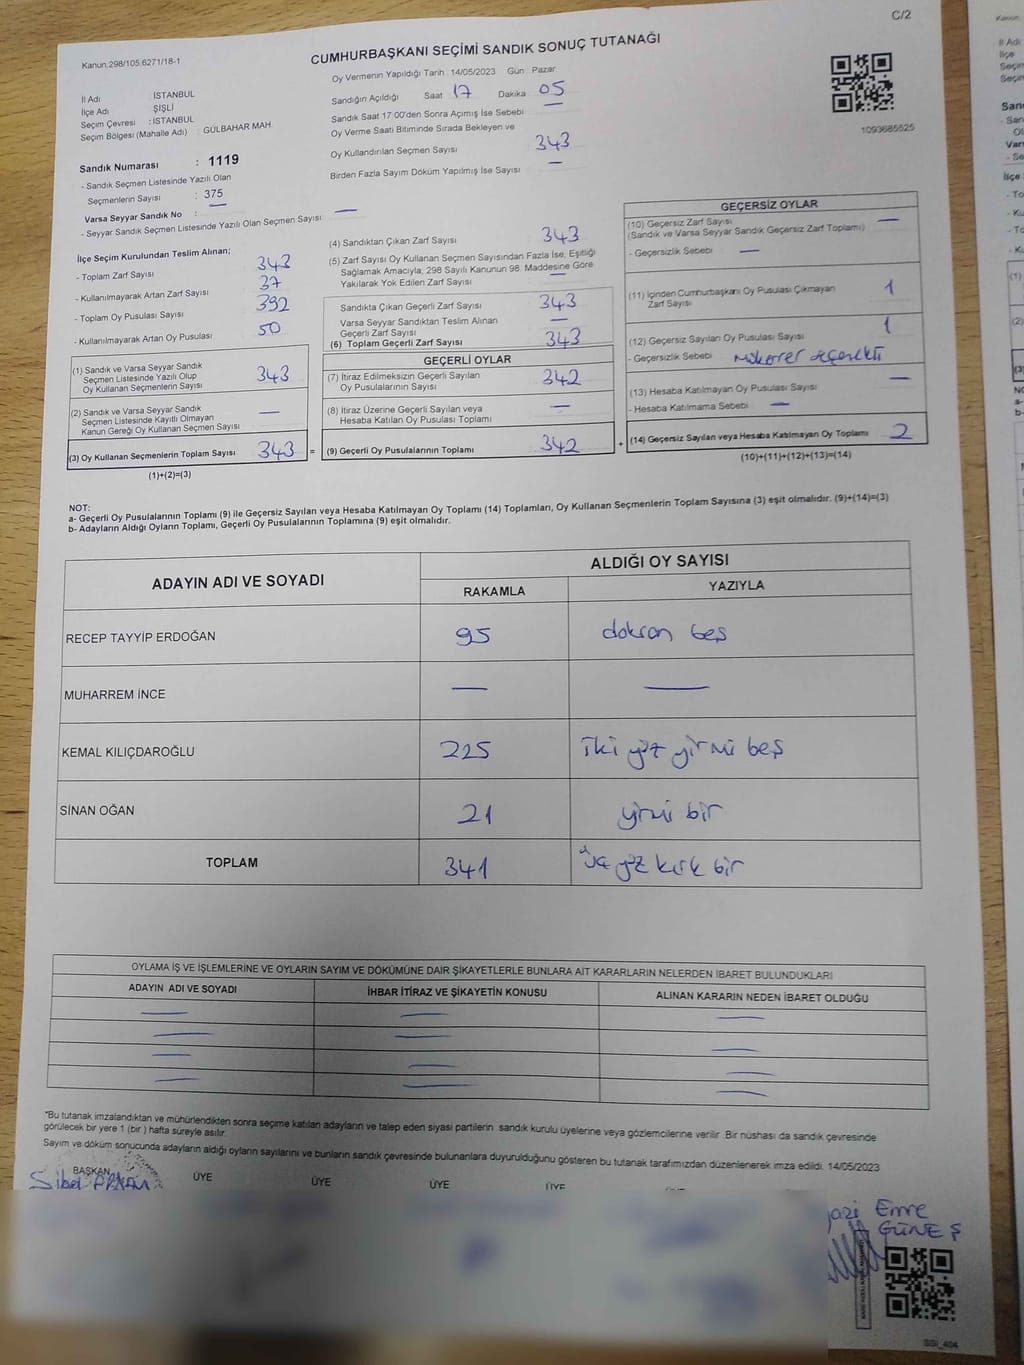 C/2
Kanun,298/105,6271/18-1
CUMHURBAŞKANI SEÇİMİ SANDIK SONUÇ TUTANAĞI
Oy Vermenin Yapıldığı Tarih : 14/05/2023 Gün : Pazar
İl Adı : İSTANBUL
İlçe Adı : ŞİŞLİ
Seçim Çevresi : İSTANBUL
Seçim Bölgesi (Mahalle Adı) : GÜLBAHAR MAH.
Sandığın Açıldığı Saat 17 Dakika 05
Sandık Saat 17:00'den Sonra Açımış İse Sebebi —
Oy Verme Saati Bitiminde Sırada Bekleyen ve
Oy Kullandırılan Seçmen Sayısı 343
Birden Fazla Sayım Döküm Yapılmış İse Sayısı —
1093685525
Sandık Numarası : 1119
- Sandık Seçmen Listesinde Yazılı Olan
Seçmenlerin Sayısı : 375
Varsa Seyyar Sandık No : —
- Seyyar Sandık Seçmen Listesinde Yazılı Olan Seçmen Sayısı : —
İlçe Seçim Kurulundan Teslim Alınan;
- Toplam Zarf Sayısı 343
- Kullanılmayarak Artan Zarf Sayısı 37
- Toplam Oy Pusulası Sayısı 392
- Kullanılmayarak Artan Oy Pusulası 50
(1) Sandık ve Varsa Seyyar Sandık
Seçmen Listesinde Yazılı Olup
Oy Kullanan Seçmenlerin Sayısı 343
(2) Sandık ve Varsa Seyyar Sandık
Seçmen Listesinde Kayıtlı Olmayan
Kanun Gereği Oy Kullanan Seçmen Sayısı —
(3) Oy Kullanan Seçmenlerin Toplam Sayısı 343 =
(1)+(2)=(3)
(4) Sandıktan Çıkan Zarf Sayısı 343
(5) Zarf Sayısı Oy Kullanan Seçmen Sayısından Fazla İse, Eşitliği
Sağlamak Amacıyla, 298 Sayılı Kanunun 98. Maddesine Göre
Yakılarak Yok Edilen Zarf Sayısı —
Sandıkta Çıkan Geçerli Zarf Sayısı 343
Varsa Seyyar Sandıktan Teslim Alınan
Geçerli Zarf Sayısı —
(6) Toplam Geçerli Zarf Sayısı 343
GEÇERLİ OYLAR
(7) İtiraz Edilmeksizin Geçerli Sayılan
Oy Pusulalarının Sayısı 342
(8) İtiraz Üzerine Geçerli Sayılan veya
Hesaba Katılan Oy Pusulası Toplamı —
(9) Geçerli Oy Pusulalarının Toplamı 342 +
GEÇERSİZ OYLAR
(10) Geçersiz Zarf Sayısı —
(Sandık ve Varsa Seyyar Sandık Geçersiz Zarf Toplamı)
- Geçersizlik Sebebi —
(11) İçinden Cumhurbaşkanı Oy Pusulası Çıkmayan
Zarf Sayısı 1
(12) Geçersiz Sayılan Oy Pusulası Sayısı 1
- Geçersizlik Sebebi
(13) Hesaba Katılmayan Oy Pusulası Sayısı —
- Hesaba Katılmama Sebebi —
(14) Geçersiz Sayılan veya Hesaba Katılmayan Oy Toplamı 2
(10)+(11)+(12)+(13)=(14)
NOT:
a- Geçerli Oy Pusulalarının Toplamı (9) ile Geçersiz Sayılan veya Hesaba Katılmayan Oy Toplamı (14) Toplamları, Oy Kullanan Seçmenlerin Toplam Sayısına (3) eşit olmalıdır. (9)+(14)=(3)
b- Adayların Aldığı Oyların Toplamı, Geçerli Oy Pusulalarının Toplamına (9) eşit olmalıdır.
ADAYIN ADI VE SOYADI
ALDIĞI OY SAYISI
RAKAMLA YAZIYLA
RECEP TAYYİP ERDOĞAN 95 doksan beş
MUHARREM İNCE — —
KEMAL KILIÇDAROĞLU 225 iki yüz yirmi beş
SİNAN OĞAN 21 yirmi bir
TOPLAM 341 üç yüz kırk bir
OYLAMA İŞ VE İŞLEMLERİNE VE OYLARIN SAYIM VE DÖKÜMÜNE DAİR ŞİKAYETLERLE BUNLARA AİT KARARLARIN NELERDEN İBARET BULUNDUKLARI
ADAYIN ADI VE SOYADI İHBAR İTİRAZ VE ŞİKAYETİN KONUSU ALINAN KARARIN NEDEN İBARET OLDUĞU
*Bu tutanak imzalandıktan ve mühürlendikten sonra seçime katılan adayların ve talep eden siyasi partilerin sandık kurulu üyelerine veya gözlemcilerine verilir. Bir nüshası da sandık çevresinde
görülecek bir yere 1 (bir ) hafta süreyle asılır.
Sayım ve döküm sonucunda adayların aldığı oyların sayılarını ve bunların sandık çevresinde bulunanlara duyurulduğunu gösteren bu tutanak tarafımızdan düzenlenerek imza edildi. 14/05/2023
BAŞKAN ÜYE ÜYE ÜYE ÜYE
Sibel
Emre
GÜNEŞ